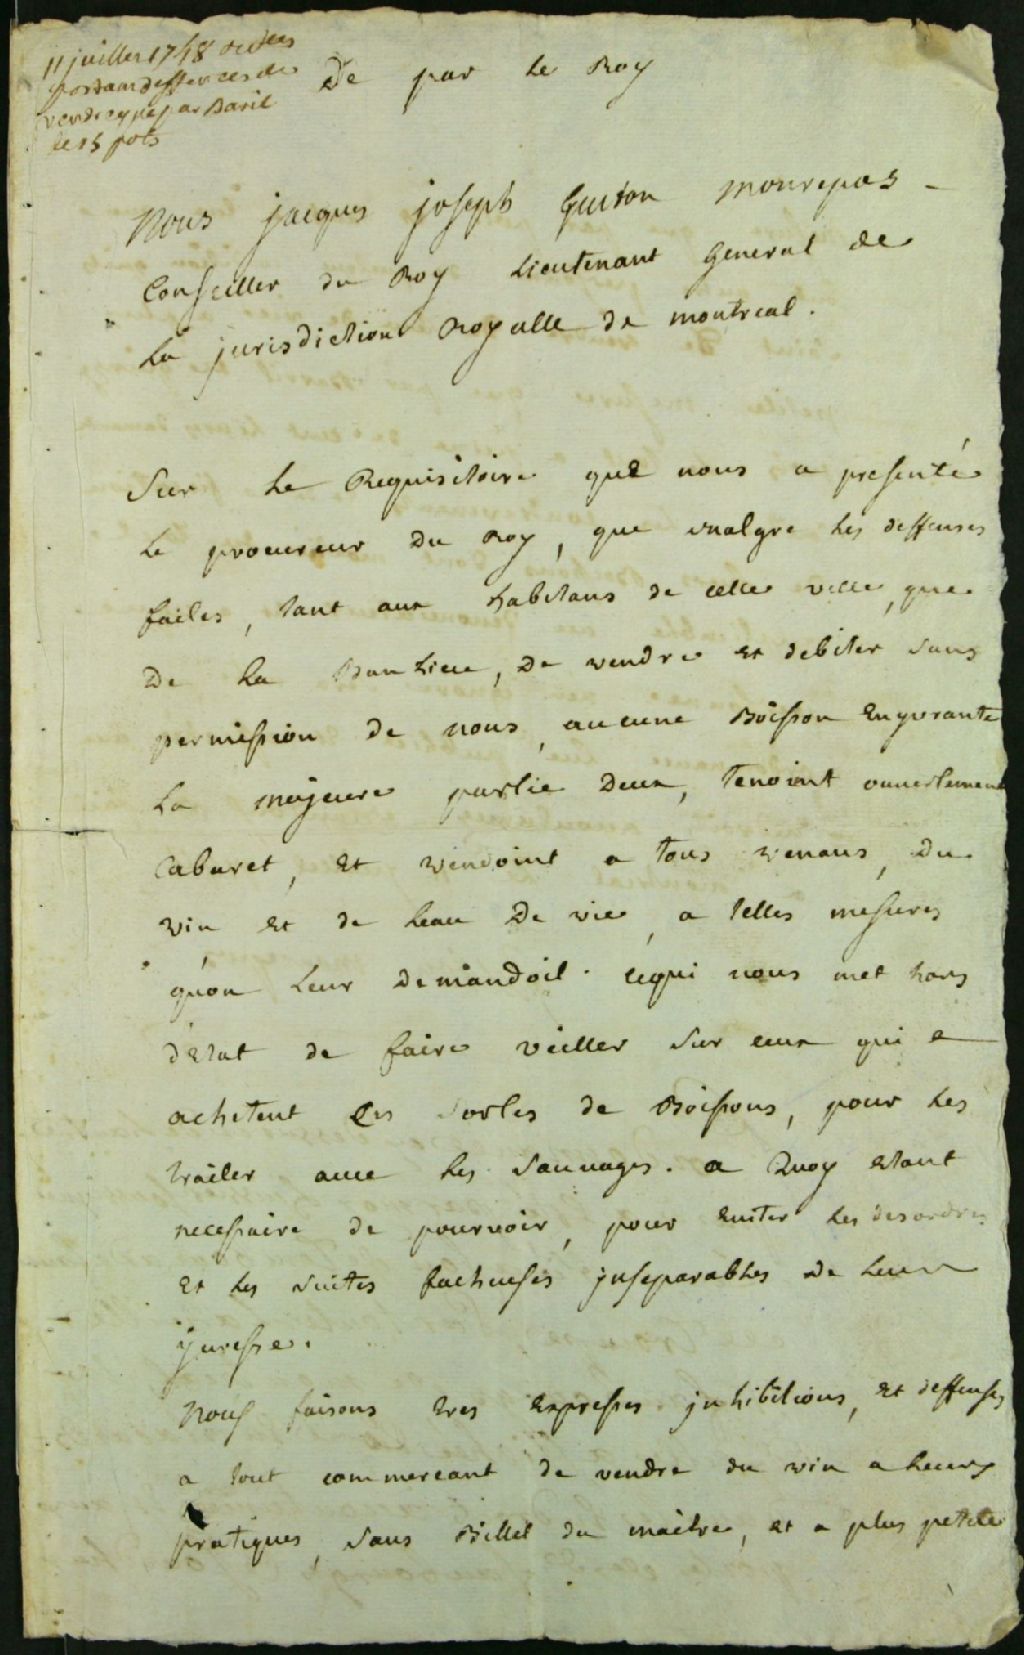 11 juillet 1748 ordces
portant deffences de
vendre que par Baril
de 15 pots
De par le Roy
Nous jacques joseph Guiton monrepos
Conseiller du Roy Lieutenant General de
La jurisdiction Royalle de montreal.
Sur le Requisitoire que nous a presenté
le procureur du Roy, que malgre les deffenses
faites, tant aux habitans de cette ville, que
de la Banlieue, de vendre et debiter sans
permission de nous, aucune Boisson Enyvrante
La majeure partie deux, tenoint ouvertement
Cabaret, et vendoint a tous venans, du
vin et de leau de vie, a telles mesures
qu'on leur demandoit. cequi nous met hors
d'Etat de faire veiller sur ceux qui
achetent Ces sortes de Boissons, pour les
traiter avec les sauvages. a Quoy Etant
necessaire de pourvoir, pour Eviter les desordres
et les suites facheuses jnseparables de leur
yvresse.
Nous faisons tres Expresses jnhibitions, et deffenses
a tout commercant de vendre du vin a leurs
pratiques, sans Billet du maitre, et a plus petite